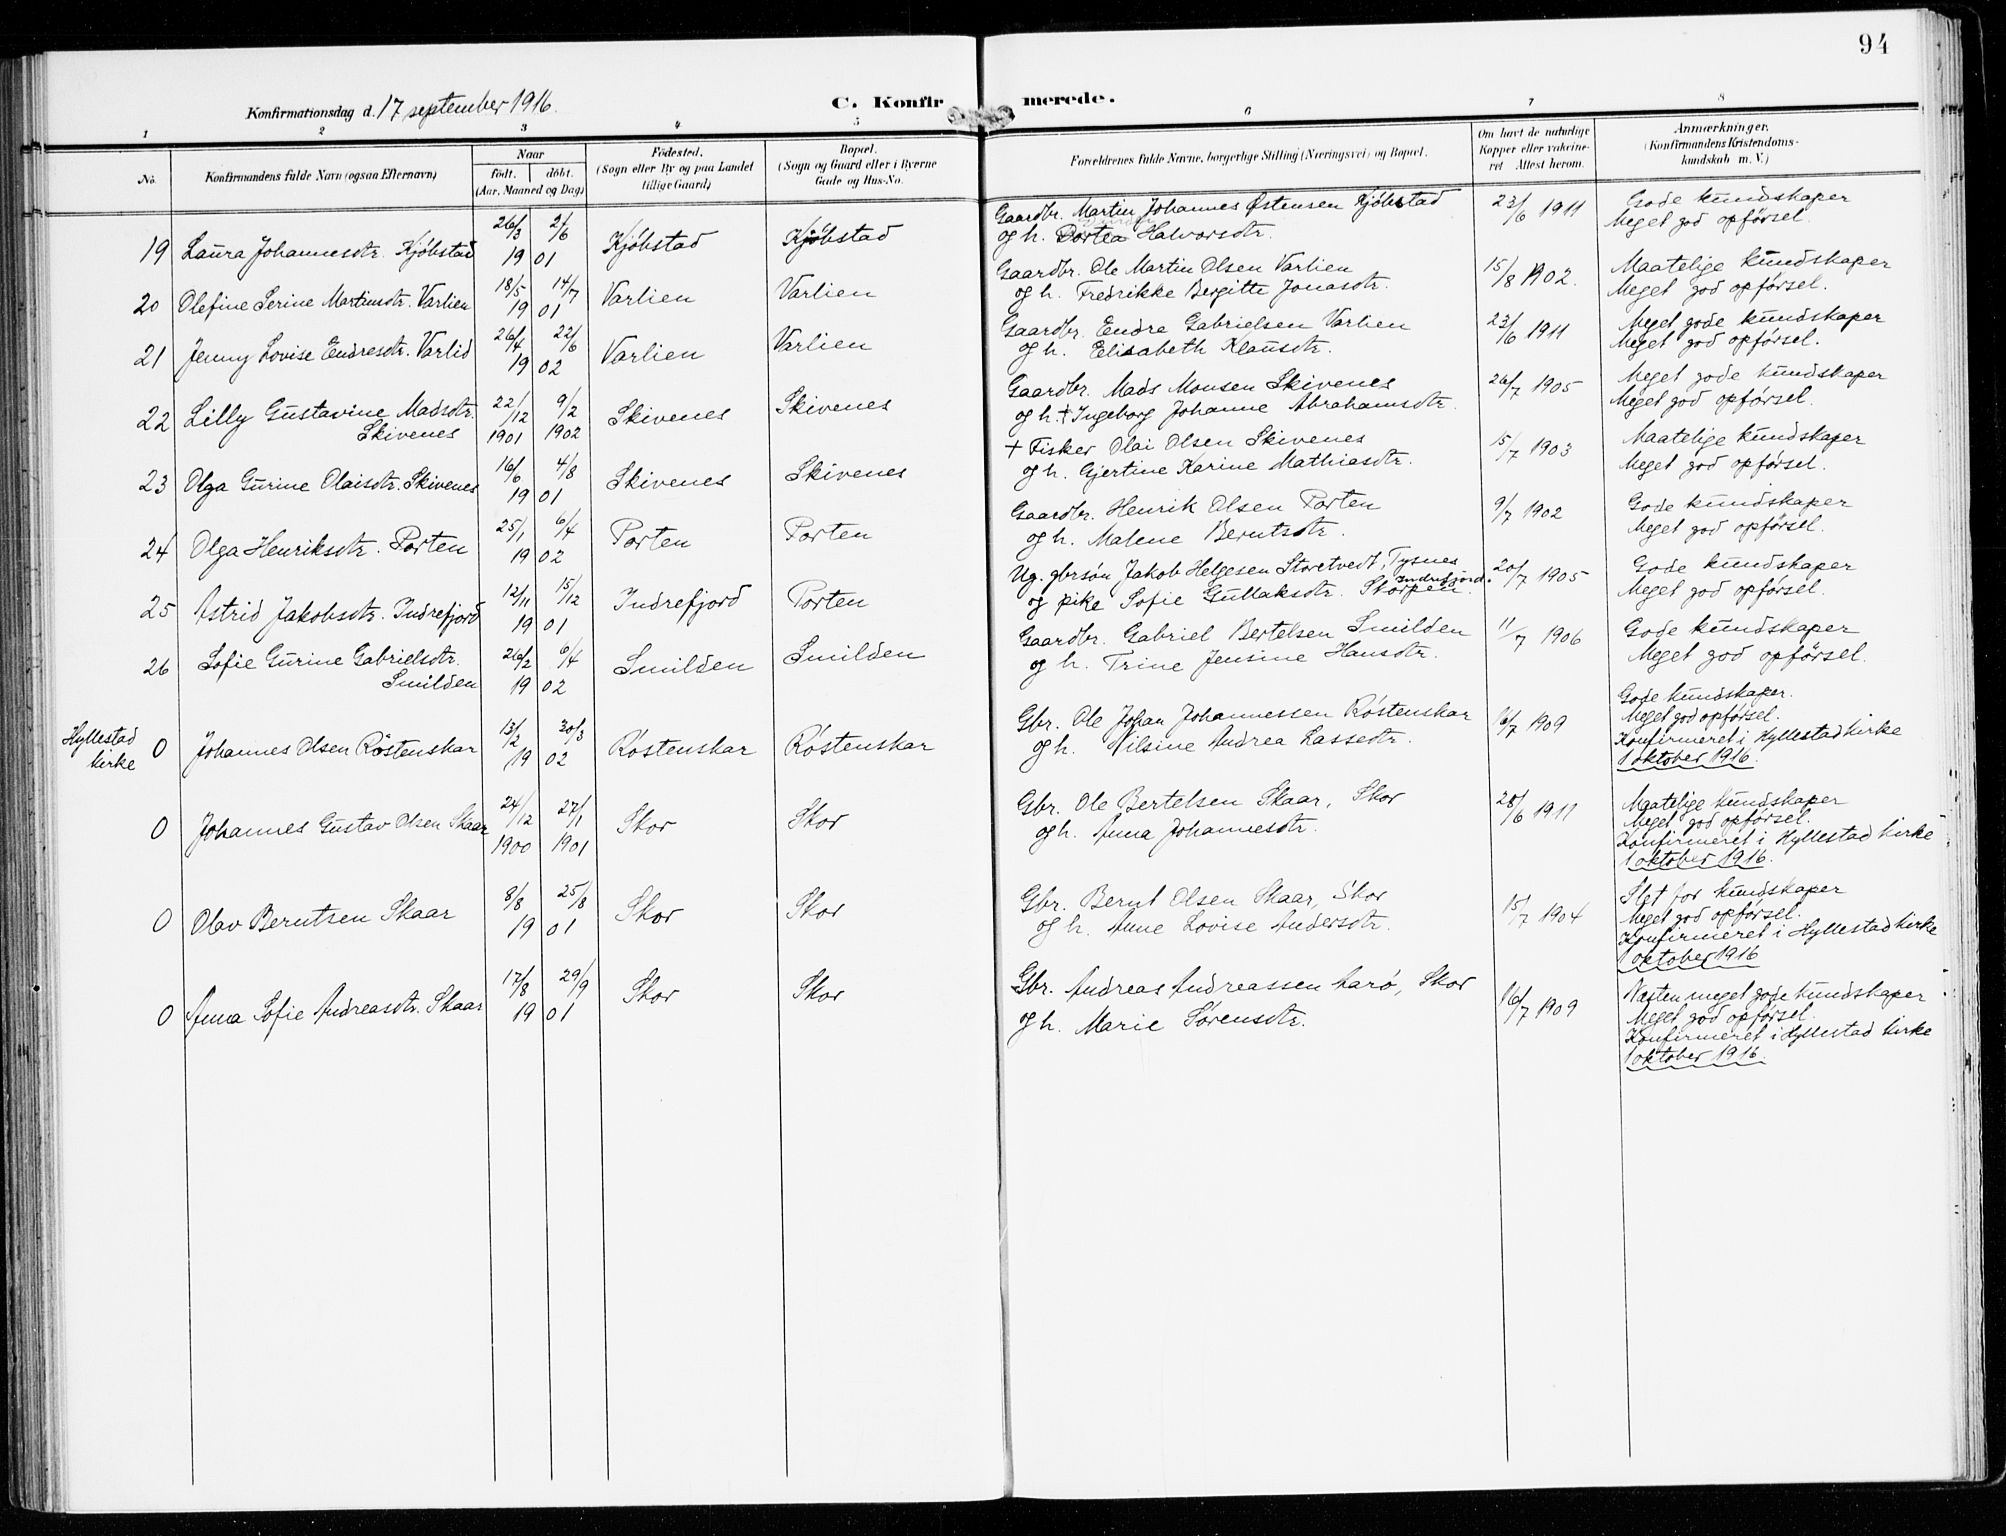 94
Konfirmationsdag d. 17 september 1916.
C. Konfirmerede.
1 2 3 4 5 6 7 8
No. Konfirmandens fulde Navn (ogsaa Efternavn)
Naar
født. døbt.
(Aar, Maaned og Dag)
Fødested.
(Sogn eller By og paa Landet
tillige Gaard)
Bopæl.
(Sogn og Gaard eller i Byerne
Gade og Hus-No.
Forældrenes fulde Navne, borgerlige Stilling (Næringsvei) og Bopæl.
Om havt de naturlige
Kopper eller vakcine-
ret Attest herom.
Anmærkninger.
(Konfirmandens Kristendoms-
kundskab m. V.)
19 Laura Johannesdtr. Kjøbstad 26/3 2/6 1901 Kjøbstad Kjøbstad
Gaardbr. Martin Johannes Østensen Kjøbstad 23/6 1911 Gode kundskaper
og h. Dortea Halvorsdtr. Meget god opførsel.
20 Olefine Serine Martinsdtr. Varlien 18/5 14/7 1901 Varlien Varlien
Gaardbr. Ole Martin Olsen Varlien 15/8 1902. Maatelige kundskaper
og h. Fredrikke Bergitte Jonasdtr. Meget god opførsel.
21 Jenny Lovise Endresdtr. Varlid 26/4 22/6 1902 Varlien Varlien
Gaardbr. Endre Gabrielsen Varlien 23/6 1911 Meget gode kundskaper
og h. Elisabeth Klausdtr. Meget god opførsel.
22 Lilly Gustavine Madsdtr. 22/12 1901 9/2 1902 Skivenes Skivenes
Skivenes
Gaardbr. Mads Monsen Skivenes 26/7 1905 Meget gode kundskaper
og h. + Ingeborg Johanne Abrahamsdtr. Meget god opførsel.
23 Olga Gurine Olaisdtr. Skivenes 16/6 4/8 1901 Skivenes Skivenes
+ Fisker Olai Olsen Skivenes 15/7 1903 Maatelige kundskaper
og h. Gjertine Karine Mathiasdtr. Meget god opførsel.
24 Olga Henriksdtr. Porten 25/1 6/4 1902 Porten Porten
Gaardbr. Henrik Olsen Porten 9/7 1902 Gode kundskaper
og h. Malene Berntsdtr. Meget god opførsel.
25 Astrid Jakobsdtr. Indrefjord 12/11 15/12 1901 Indrefjord Porten
Ug. gbrsøn Jakob Helgesen Storetvedt, Tysnes 20/7 1905 Gode kundskaper
og pike Sofie Gullaksdtr. Skorpen Indrefjord. Meget god opførsel.
26 Sofie Gurine Gabrielsdtr. 26/2 6/4 1902 Smilden Smilden
Smilden
Gaardbr. Gabriel Bertelsen Smilden 11/7 1906 Gode kundskaper
og h. Trine Jensine Hansdtr. Meget god opførsel.
Hyllestad
kirke
0 Johannes Olsen Røstenskar 13/2 30/3 1902 Røstenskar Røstenskar
Gbr. Ole Johan Johannessen Røstenskar 16/7 1909 Gode kundskaper.
og h. Nilsine Andrea Lassedtr. Meget god opførsel.
Konfirmeret i Hyllestad kirke
1 oktober 1916.
0 Johannes Gustav Olsen Skaar 24/12 1900 27/1 1901 Skor Skor
Gbr. Ole Bertelsen Skaar, Skor 28/6 1911 Maatelige kundskaper
og h. Anna Johannesdtr. Meget god opførsel.
Konfirmeret i Hyllestad kirke
1 oktober 1916.
0 Olav Berntsen Skaar 8/8 25/8 1901 Skor Skor
Gbr. Bernt Olsen Skaar, Skor 15/7 1904 Slet for kundskaper
og h. Anne Lovise Andersdtr. Meget god opførsel.
Konfirmeret i Hyllestad kirke
1 oktober 1916
0 Anna Sofie Andreasdtr. Skaar 17/8 29/9 1901 Skor Skor
Gbr. Andreas Andreassen Aarø, Skor 16/7 1909 Næsten meget gode kundskaper
og h. Marie Sørensdtr. Meget god opførsel.
Konfirmeret i Hyllestad kirke
1 oktober 1916.